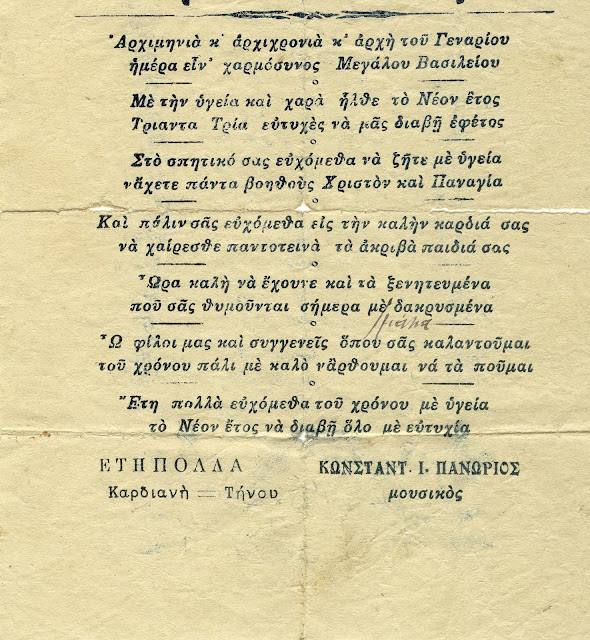 Ἀρχιμηνιὰ κ' ἀρχιχρονιὰ κ' ἀρχὴ τοῦ Γεναρίου
ἡμέρα εἶν' χαρμόσυνος Μεγάλου Βασιλείου
Μὲ τὴν ὑγεία καὶ χαρὰ ἦλθε τὸ Νέον ἔτος
Τριαντα Τρία εὐτυχὲς νὰ μᾶς διαβῇ ἐφέτος
Στὸ σπητικό σας εὐχόμεθα νὰ ζῆτε μὲ ὑγεία
νἄχετε πάντα βοηθοὺς Χριστὸν καὶ Παναγία
Καὶ πάλιν σᾶς εὐχόμεθα εἰς τὴν καλὴν καρδιά σας
νὰ χαίρεσθε παντοτεινὰ τὰ ἀκριβὰ παιδιά σας
Ὥρα καλὴ νὰ ἔχουνε καὶ τὰ ξενητευμένα
ποῦ σᾶς θυμοῦνται σήμερα μὲ δακρυσμένα
Ὦ φίλοι μας καὶ συγγενεῖς ὅπου σᾶς καλαντοῦμαι
τοῦ χρόνου πάλι μὲ καλὸ νἄρθουμαι νά τὰ ποῦμαι
Ἔτη πολλὰ εὐχόμεθα τοῦ χρόνου μὲ ὑγεία
τὸ Νέον ἔτος νὰ διαβῇ ὅλο μὲ εὐτυχία
ΕΤΗ ΠΟΛΛΑ
ΚΩΝΣΤΑΝΤ. Ι. ΠΑΝΩΡΙΟΣ
Καρδιανὴ = Τήνου
μουσικὸς